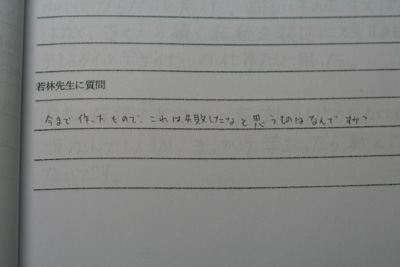 若林先生に質問
今まで作ったもので、これは失敗したなと思うものはなんですか?